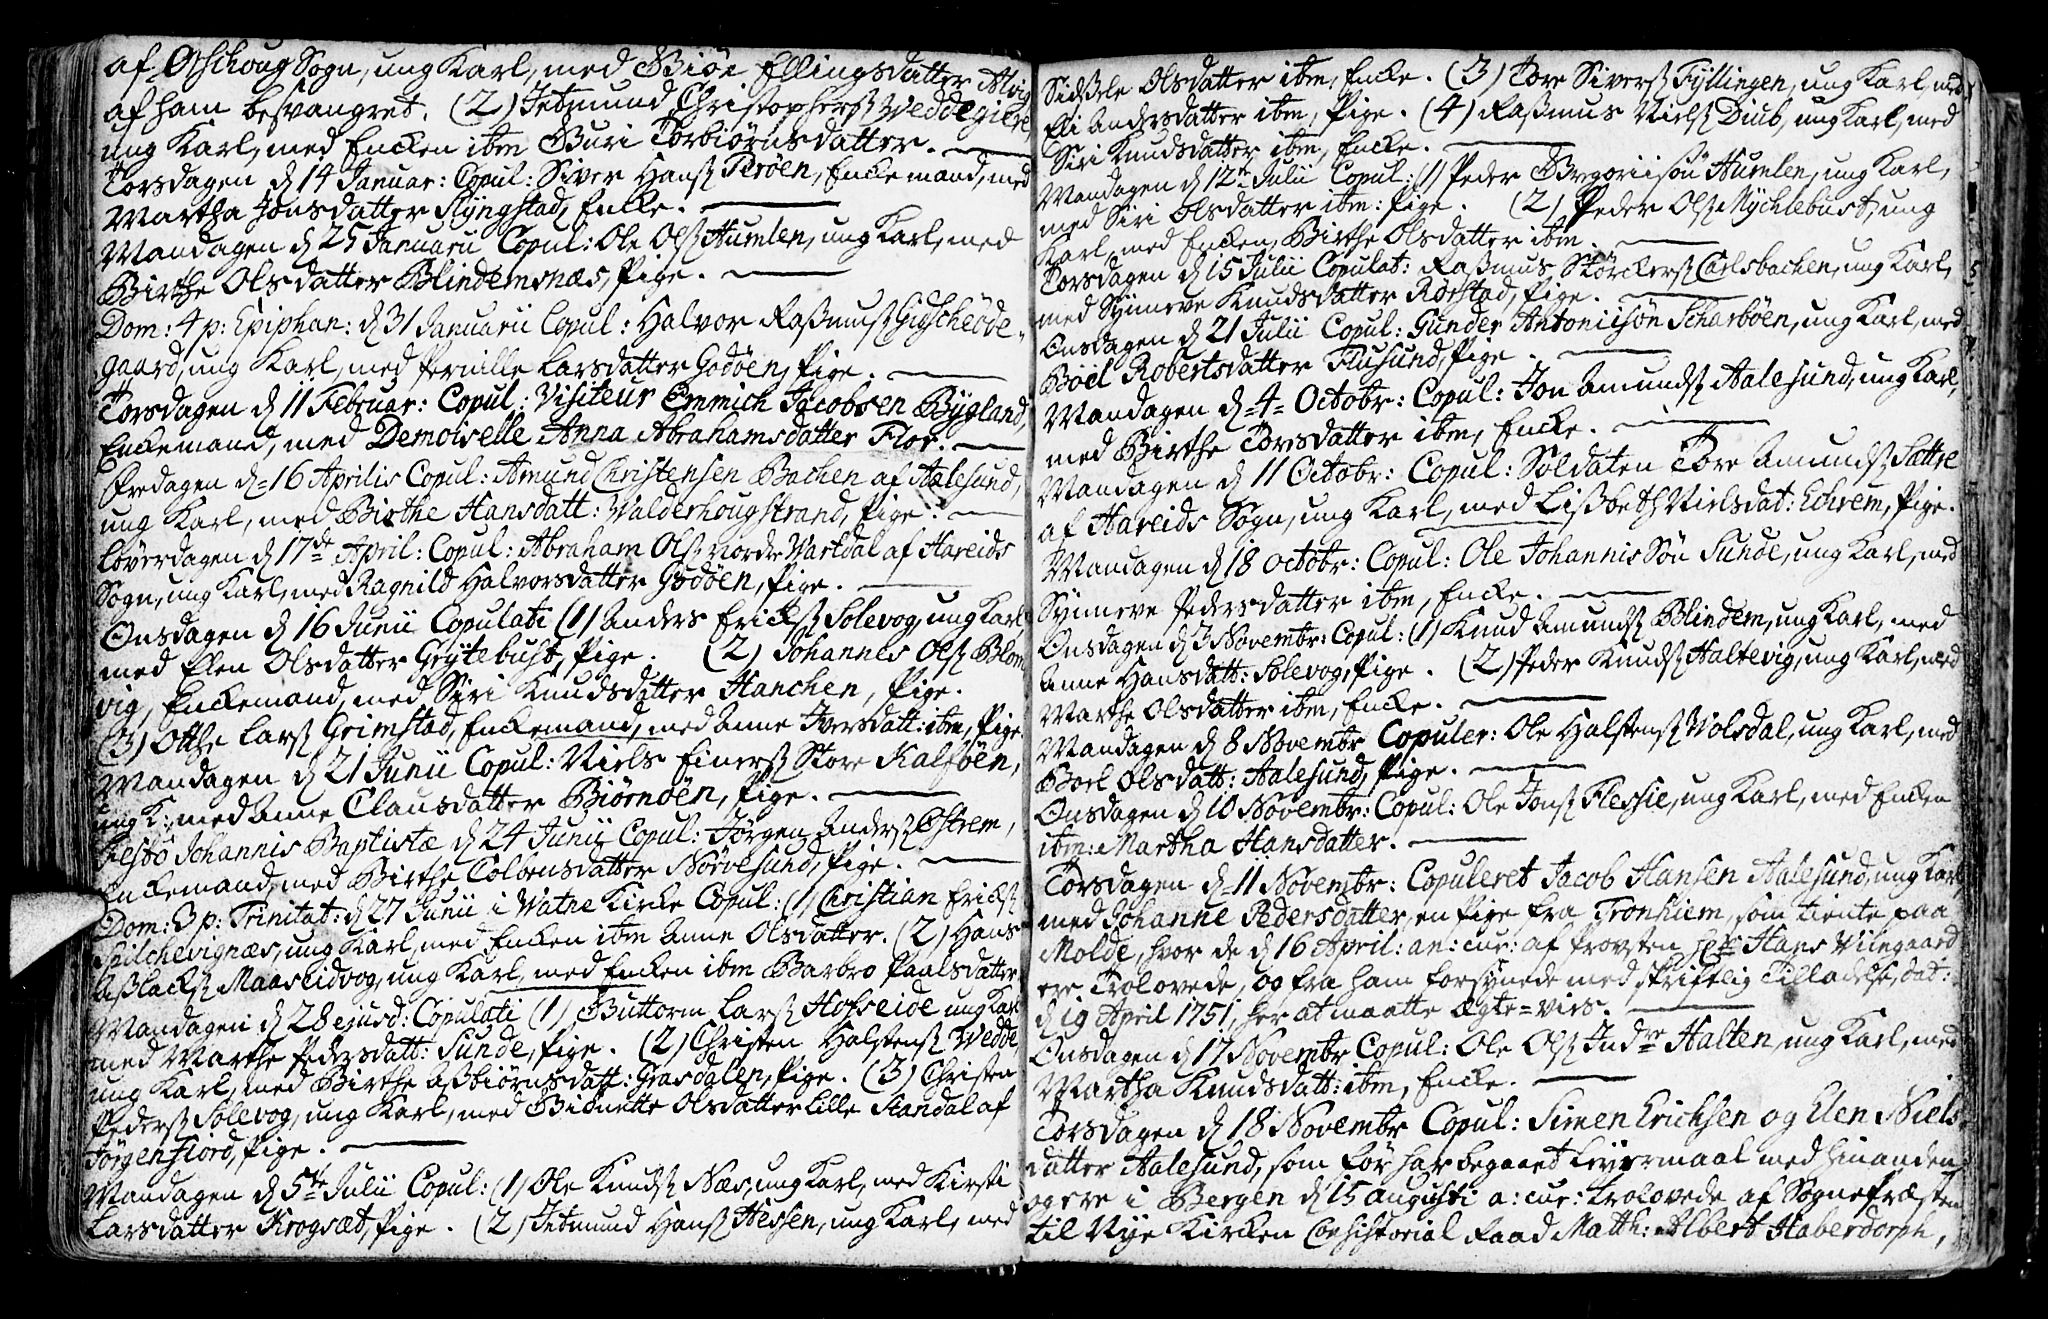 af Oschoug Sogn, ung Karl, med Giöe Ellingsdatter Alvig
af ham besvangret. (2) Jetmund Christophersß Weddegiere
ung Karl, med Encken ibm Guri Torbiörnsdatter.
Torsdagen d 14 Januar: Copul: Siver Hansß Terøen, Enckemand, med
Martha Jonsdatter Slyngstad, Encke.
Mandagen d 25 Januarii Copul: Ole Olsß Humlen, ung Karl, med
Birthe Olsdatter Blindemsnæs, Pige.
Dom: 4 p: Epiphan: d 31 Januarii Copul: Halvor Raßmusß Gidscheöde-
gaard, ung Karl, med Pernille Larsdatter Godöen, Pige.
Torsdagen d 11 Februar: Copul: Visiteur Emmich Jacobsen Bÿgland,
Enckemand, med Demoiselle Anna Abrahamsdatter Flor.
Fredagen d 16 Aprilis Copul: Amund Christensen Bachen af Aalesund,
ung Karl, med Birthe Hansdatt: Walderhougstrand, Pige.
Löverdagen d 17de April: Copul: Abraham Olsß nordre Vartdal af Hareids
Sogn, ung Karl, med Ragnild Halvorsdatter Godöen, Pige.
Onsdagen d 16 Junii Copulati (1) Anders Ericksß Solevog, ung Karl
med Elen Olsdatter Grÿtebust, Pige. (2) Johannes Olsß Blom-
vig, Enckemand, med Siri Knudsdatter Hanchen, Pige.
(3) Otthe Larsß Grimstad, Enckemand, med Anne Iversdatt: ibm, Pige.
Mandagen d 21 Junii Copul: Niels Einersß Store Kalföen,
ung K:, med Anne Clausdatter Biörnöen, Pige.
Festo Johannis Baptistæ d 24 Junii Copul: Jörgen Andersß Östrem,
Enckemand, med Birthe Colbensdatter Nörvesund, Pige.
Dom: 3 p: Trinitat: d 27 Junii i Vatne Kircke Copul: (1) Christian Ericksß
Spilchevignæs, ung Karl, med Encken ibm Anne Olsdatter. (2) Hans
Aßlacksß Maaseidvog, ung Karl, med Encken ibm Barbro Paalsdatter
Mandagen d 28 ejusd: Copulati (1) Guttorm Larsß Hofseide ung Karl
med Marthe Pedersdatt: Sunde, Pige. (2) Christen Halstensß Wedde,
ung Karl, med Birthe Aßbiörnsdatt: Grasdalen, Pige. (3) Christen
Pedersß Solevog, ung Karl, med Olsdatter Lille Standal af
Jörgenfiord, Pige.
Mandagen d 5te Julii Copul: (1) Ole Knudsß Næs, ung Karl, med Kirsti
Larsdatter Krogsæt, Pige. (2) Jetmund Hansß Hessen, ung Karl, med
Sidßele Olsdatter ibm, Encke. (3) Tore Siversß Fÿllingen, ung Karl, med
Eli Andersdatter ibm, Pige. (4) Raßmus Nielsß Diub, ung Karl, med
Siri Knudsdatter ibm, Encke.
Mandagen d 12te Julii Copul: (1) Peder Gregoriisön Humlen, ung Karl,
med Siri Olsdatter ibm: Pige. (2) Peder Olsß Mÿchlebust, ung
Karl, med Encken, Birthe Olsdatter ibm.
Torsdagen d 15 Julii Copulat: Raßmus Störckersß Carlsbachen, ung Karl,
med Sÿnneve Knudsdatter Rörstad, Pige.
Onsdagen d 21 Julii Copul: Gunder Antoniisön Scharböen, ung Karl, med
Böel Robertsdatter Flusund, Pige.
Mandagen d 4 Octobr: Copul: Jon Amundsß Aalesund, ung Karl,
med Birthe Torsdatter ibm, Encke.
Mandagen d 11 Octobr: Copul: Soldaten Tore Amundsß Sattre
af Hareids Sogn, ung Karl, med Lißbeth Nielsdat: Echrem, Pige.
Mandagen d 18 Octobr: Copul: Ole Johannis Sön Sunde, ung Karl, med
Sÿnneve Pedersdatter ibm, Encke.
Onsdagen d 3 Novembr: Copul: (1) Knud Amundsß Blindem, ung Karl, med
Anne Hansdatt: Solevog, Pige. (2) Peder Knudsß Haltevig, ung Karl, med
Marthe Olsdatter ibm, Encke.
Mandagen d 8 Novembr Copuler: Ole Halstensß Volsdal, ung Karl, med
Boel Olsdatt: Aalesund, Pige.
Onsdagen d 10 Novembr: Copul: Ole Jonsß Flessie, ung Karl, med Encken
ibm: Martha Hansdatter.
Torsdagen d 11 Novembr: Copuleret Jacob Hansen Aalesund, ung Karl,
med Johanne Pedersdatter, en Pige fra Tronhiem, som tiente paa
Molde, hvor de d 16 April: an: cur: af Provsten Hr Hans Vilegaard
ere Trolovede, og fra ham forsynede med skriftelig Tilladelse, dat:
d 19 April 1751, her at maatte Ægte-vies.
Onsdagen d 17 Novembr Copul: Ole Olsß Indre Halten, ung Karl, med
Martha Knudsdatt: ibm, Encke.
Torsdagen d 18 Novembr Copul: Simen Erichsen og Elen Niels-
datter Aalesund, som för har begaaet Leyermaal med hinanden
og ere i Bergen d 15 Augusti a: cur: trolovede af Sognepræsten
til Nÿe Kirken Consistorial Raad Matth: Albert Haberdorph,